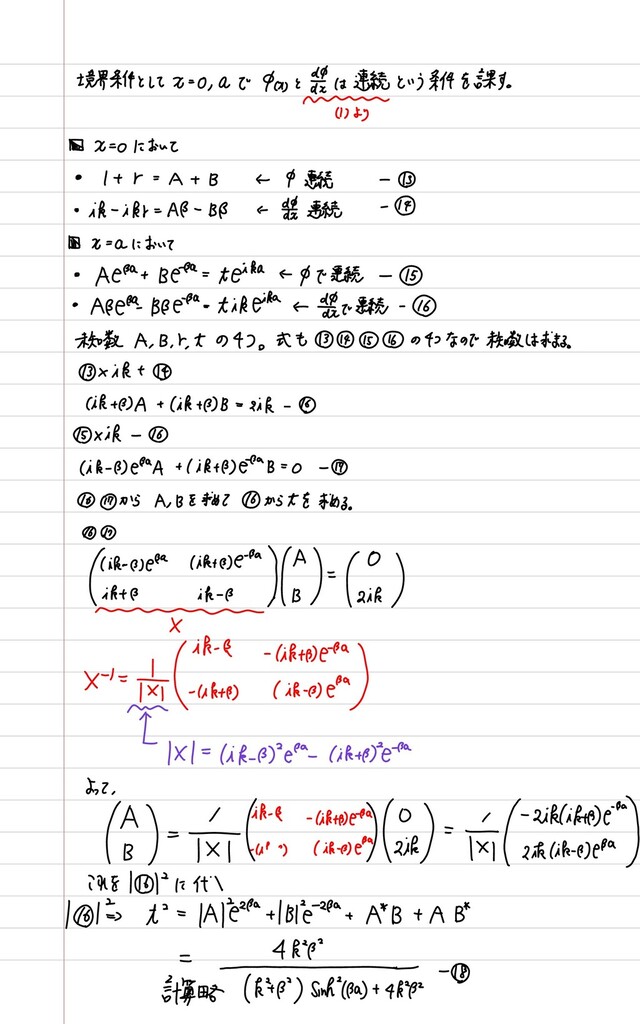 境界条件として x=0, a で φ(x) と dφ/dx は連続という条件を課す。
(1)より
x=0 において
・ 1+r = A+B ← φ 連続 −⑬
・ ik−ikr = Aβ−Bβ ← dφ/dx 連続 −⑭
x=a において
・ Ae^{βa} + Be^{-βa} = te^{ika} ← φで連続 −⑮
・ Aβe^{βa} − Bβe^{-βa} = tike^{ika} ← dφ/dxで連続 −⑯
未知数 A, B, r, t の4つ。式も⑬⑭⑮⑯の4つなので 未知数は求まる。
⑬×ik + ⑭
(ik+β)A + (ik+β)B = 2ik −⑯
⑮×ik − ⑯
(ik−β)e^{βa}A + (ik+β)e^{-βa}B = 0 −⑰
⑯⑰から A, Bを求めて ⑯から tを求める。
⑯⑰
( (ik−β)e^{βa} (ik+β)e^{-βa} ) ( A ) = ( 0 )
( ik+β ik−β ) ( B ) ( 2ik )
X
X^{-1} = 1/|X| ( ik−β −(ik+β)e^{-βa} )
( −(ik+β) (ik−β)e^{βa} )
|X| = (ik−β)²e^{βa} − (ik+β)²e^{-βa}
よって、
( A ) = 1/|X| ( ik−β −(ik+β)e^{-βa} ) ( 0 ) = 1/|X| ( −2ik(ik+β)e^{-βa} )
( B ) ( (ik−β)e^{βa} ) ( 2ik ) ( 2ik(ik−β)e^{βa} )
これを |⑯|² に代
|⑯|² ⇒ t² = |A|²e^{2βa} + |B|²e^{-2βa} + A*B + AB*
= 4k²β² / (k²+β²)² sinh²(βa) + 4k²β² −⑱
計算略